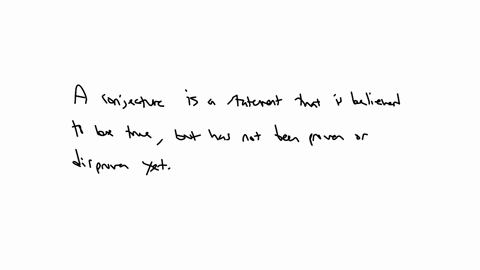 A conjecture is a statement that is believed
to be true, but has not been proven or
disproven yet.